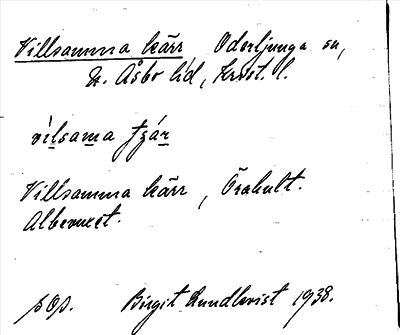 Villsamma kärr Oderljunga sn,
N. Åsbo hd, Krist. l.
vìlsama tzǽr
Villsamma kärr, Örahult.
Albevuxet.
s Op. Birgit Rundkvist 1938.